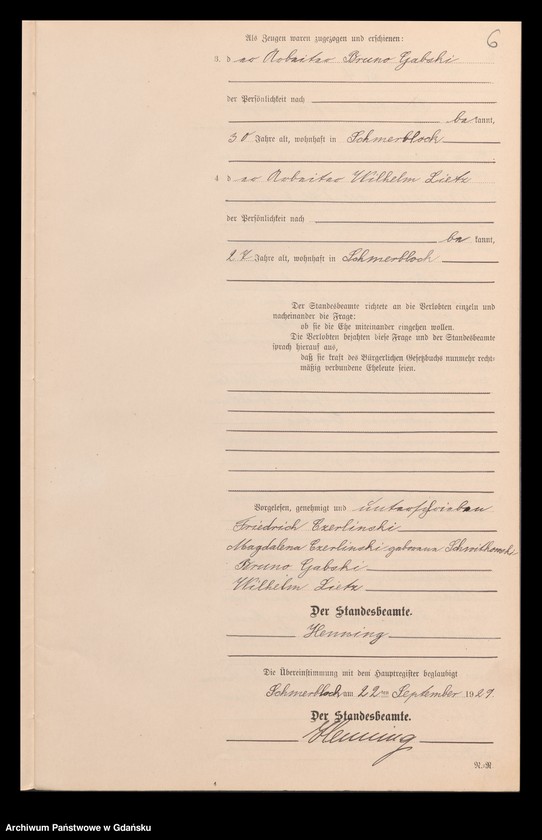 6
Als Zeugen waren zugezogen und erschienen:
3. der Arbeiter Bruno Gabski
der Persönlichkeit nach
be kannt,
30 Jahre alt, wohnhaft in Schmerblock
4. der Arbeiter Wilhelm Lietz
der Persönlichkeit nach
be kannt,
27 Jahre alt, wohnhaft in Schmerblock
Der Standesbeamte richtete an die Verlobten einzeln und
nacheinander die Frage:
ob sie die Ehe miteinander eingehen wollen.
Die Verlobten bejahten diese Frage und der Standesbeamte
sprach hierauf aus,
daß sie kraft des Bürgerlichen Gesetzbuchs nunmehr recht-
mäßig verbundene Eheleute seien.
Vorgelesen, genehmigt und unterschrieben
Friedrich Czerlinski
Magdalena Czerlinski geborene Schwitkowski
Bruno Gabski
Wilhelm Lietz
Der Standesbeamte.
Henning
Die Übereinstimmung mit dem Hauptregister beglaubigt
Schmerblock am 22 ten September 1921.
Der Standesbeamte.
Henning
N.-R.
Archiwum Państwowe w Gdańsku